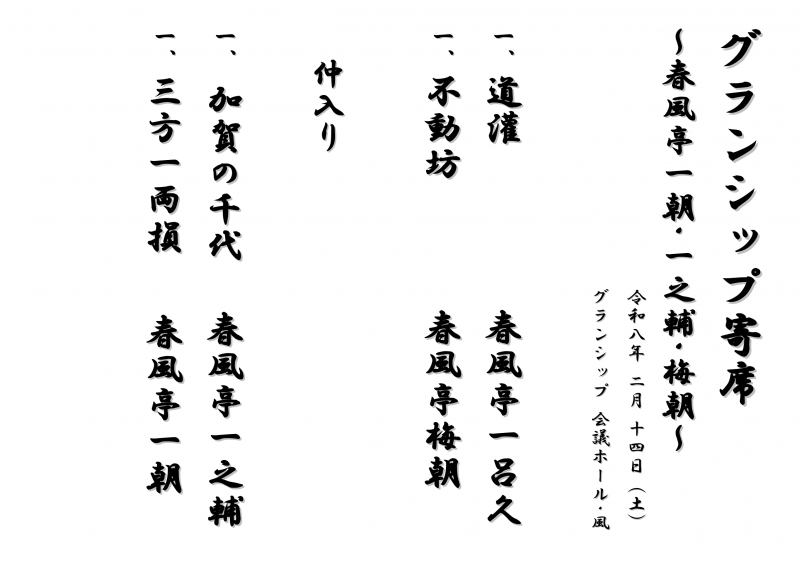 グランシップ寄席
～春風亭一朝・一之輔・梅朝～
令和八年 二月 十四日（土）
グランシップ 会議ホール・風
一、道灌 春風亭一呂久
一、不動坊 春風亭梅朝
仲入り
一、加賀の千代 春風亭一之輔
一、三方一両損 春風亭一朝